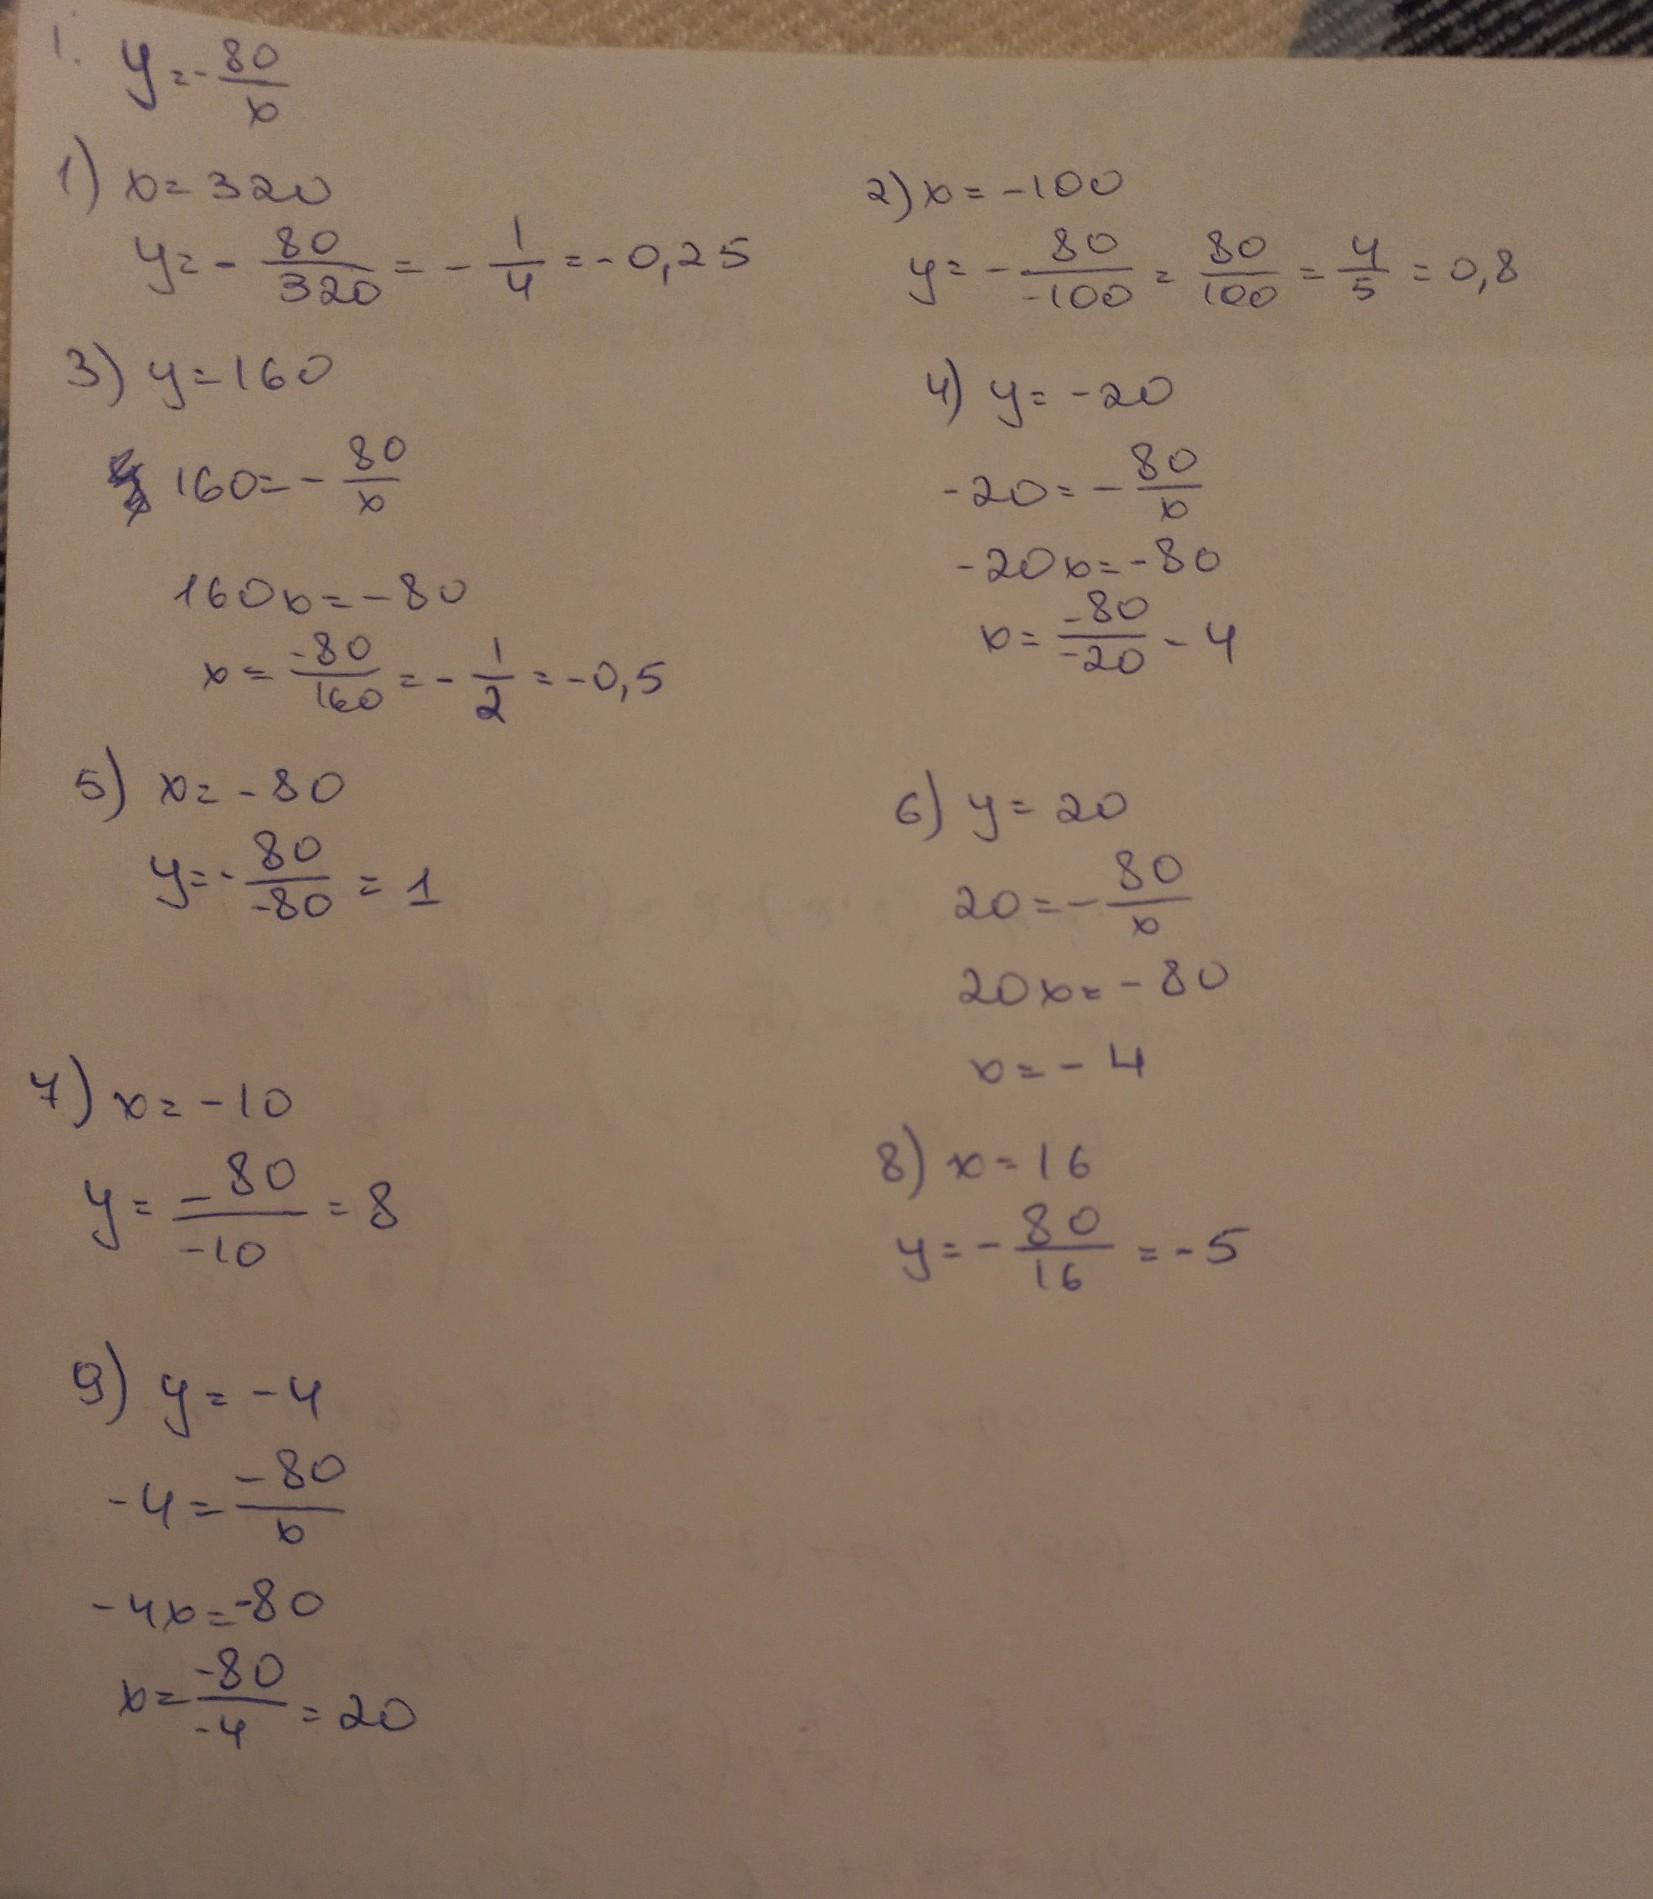 1. y = - 80/x
1) x = 320
y = - 80/320 = - 1/4 = - 0,25
2) x = -100
y = - 80/-100 = 80/100 = 4/5 = 0,8
3) y = 160
160 = - 80/x
160x = - 80
x = -80/160 = - 1/2 = -0,5
4) y = -20
-20 = - 80/x
-20x = -80
x = -80/-20 - 4
5) x = - 80
y = - 80/-80 = 1
6) y = 20
20 = - 80/x
20x = - 80
x = - 4
7) x = -10
y = -80/-10 = 8
8) x = 16
y = - 80/16 = - 5
9) y = -4
-4 = -80/x
-4x = -80
x = -80/-4 = 20